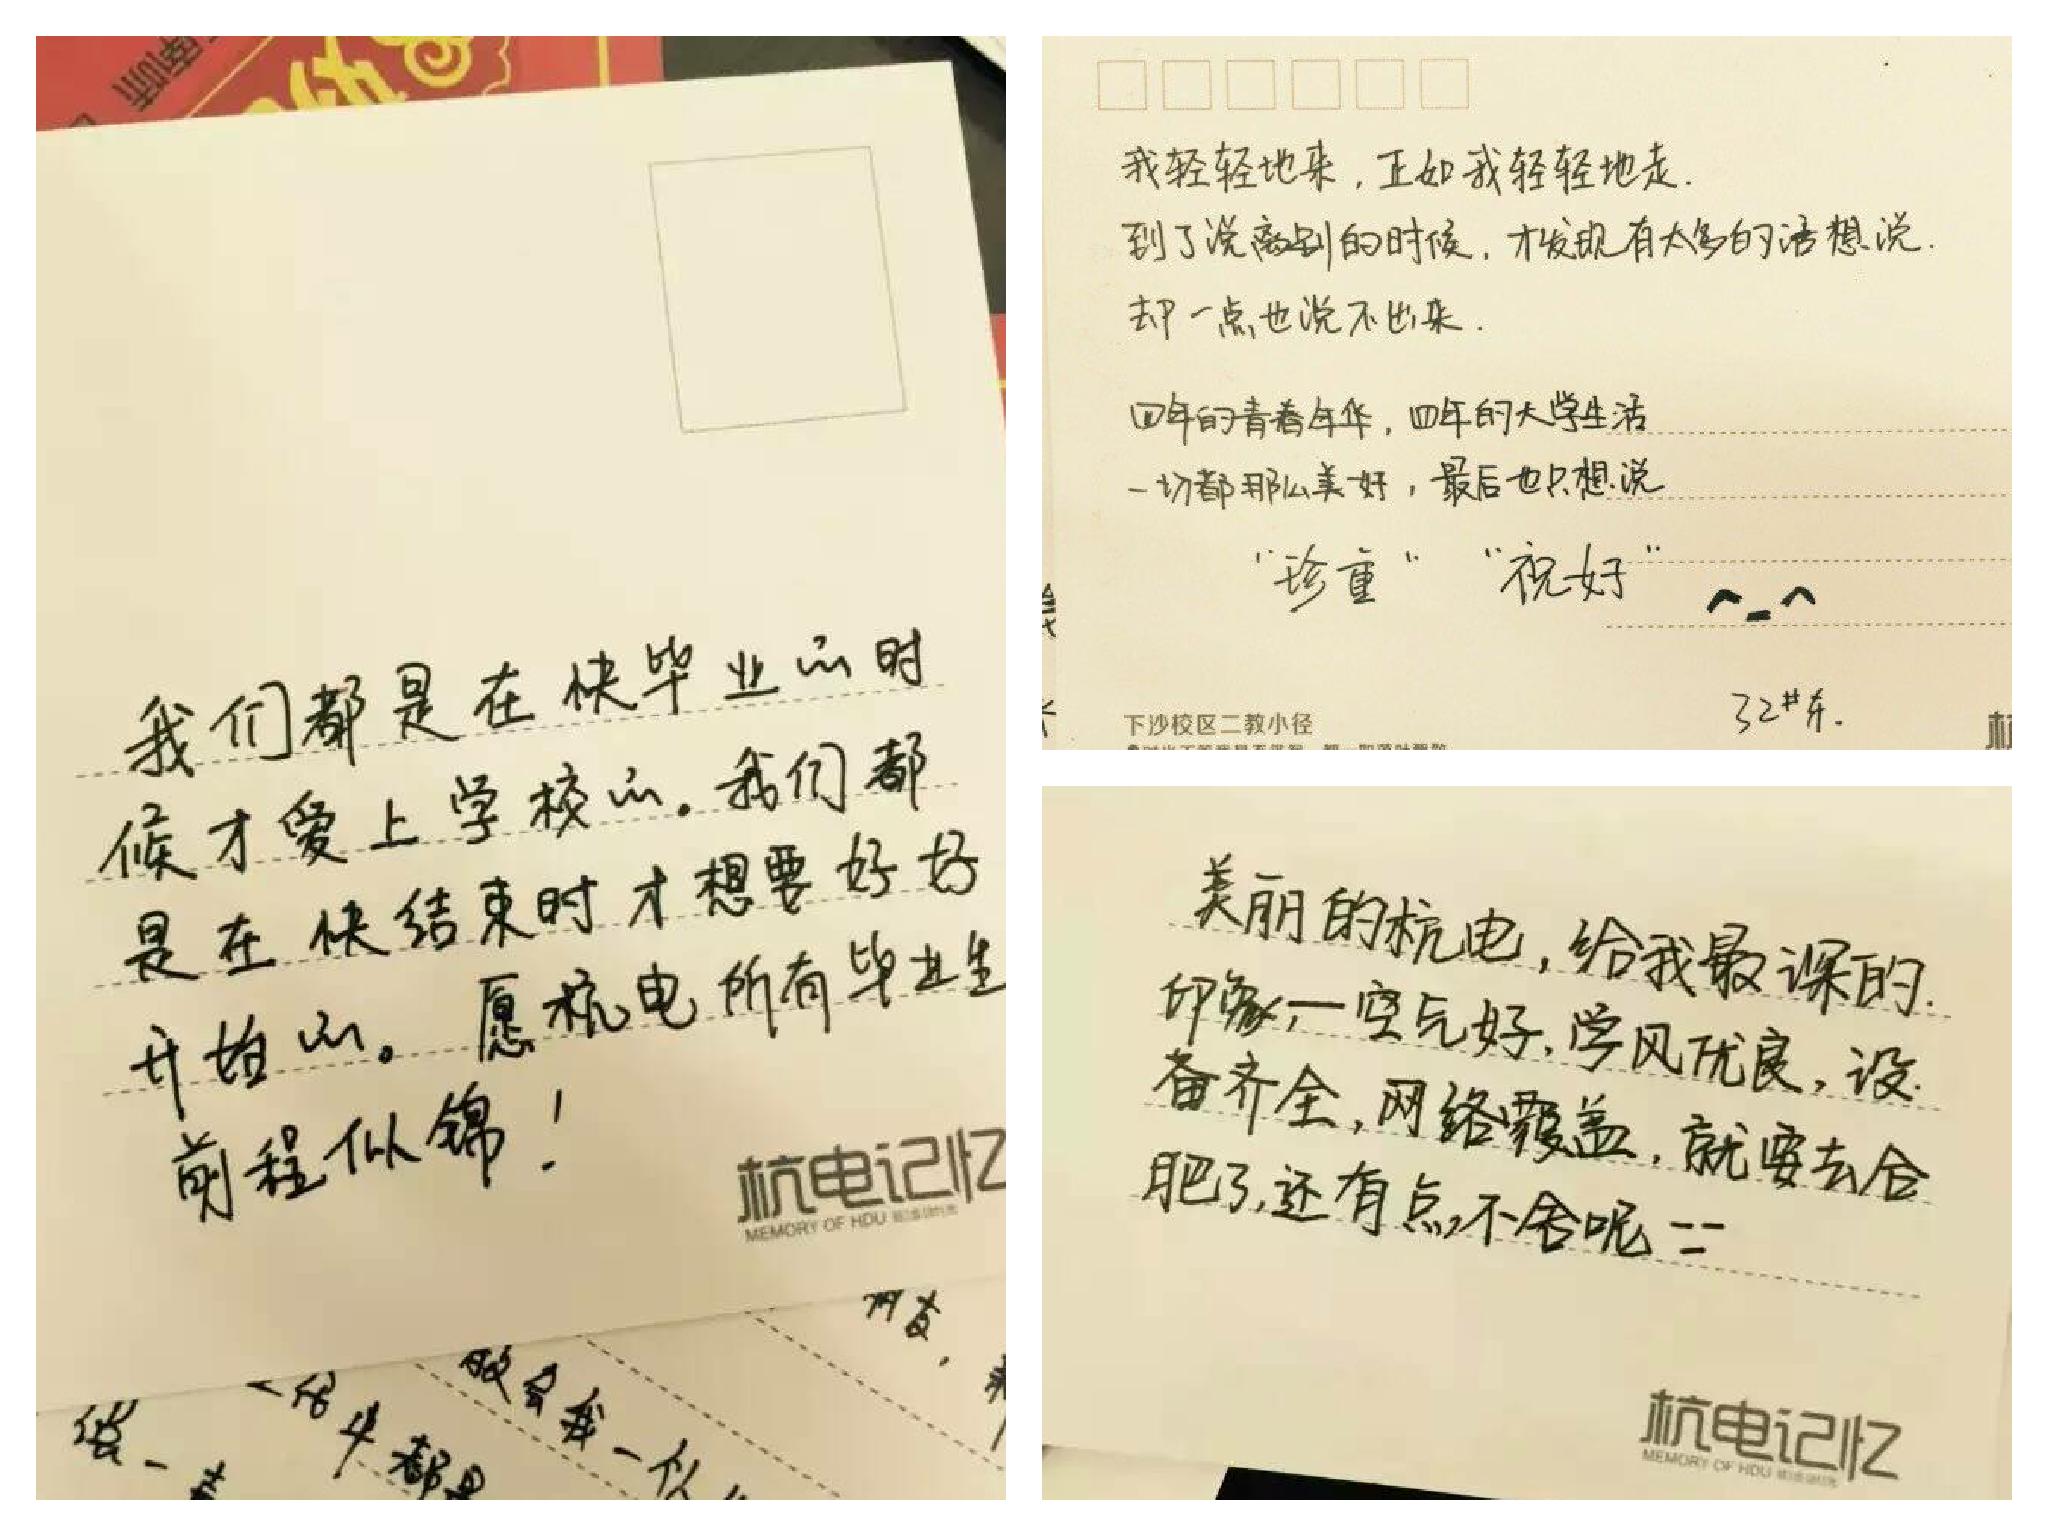 我们都是在快毕业的时
候才爱上学校的。我们都
是在快结束时才想要好好
开始的。愿杭电所有毕业生
前程似锦！
杭电记忆
MEMORY OF HDU
我轻轻地来，正如我轻轻地走.
到了说离别的时候，才发现有太多的话想说.
却一点也说不出来.
四年的青春年华，四年的大学生活
一切都那么美好，最后也只想说
“珍重” “祝好”
^_^
32#东.
下沙校区二教小径
杭
美丽的杭电，给我最深的.
印象，一空气好，学风优良，设.
备齐全，网络覆盖，就要去合
肥了，还有点不舍呢 ==
杭电记忆
MEMORY OF HDU